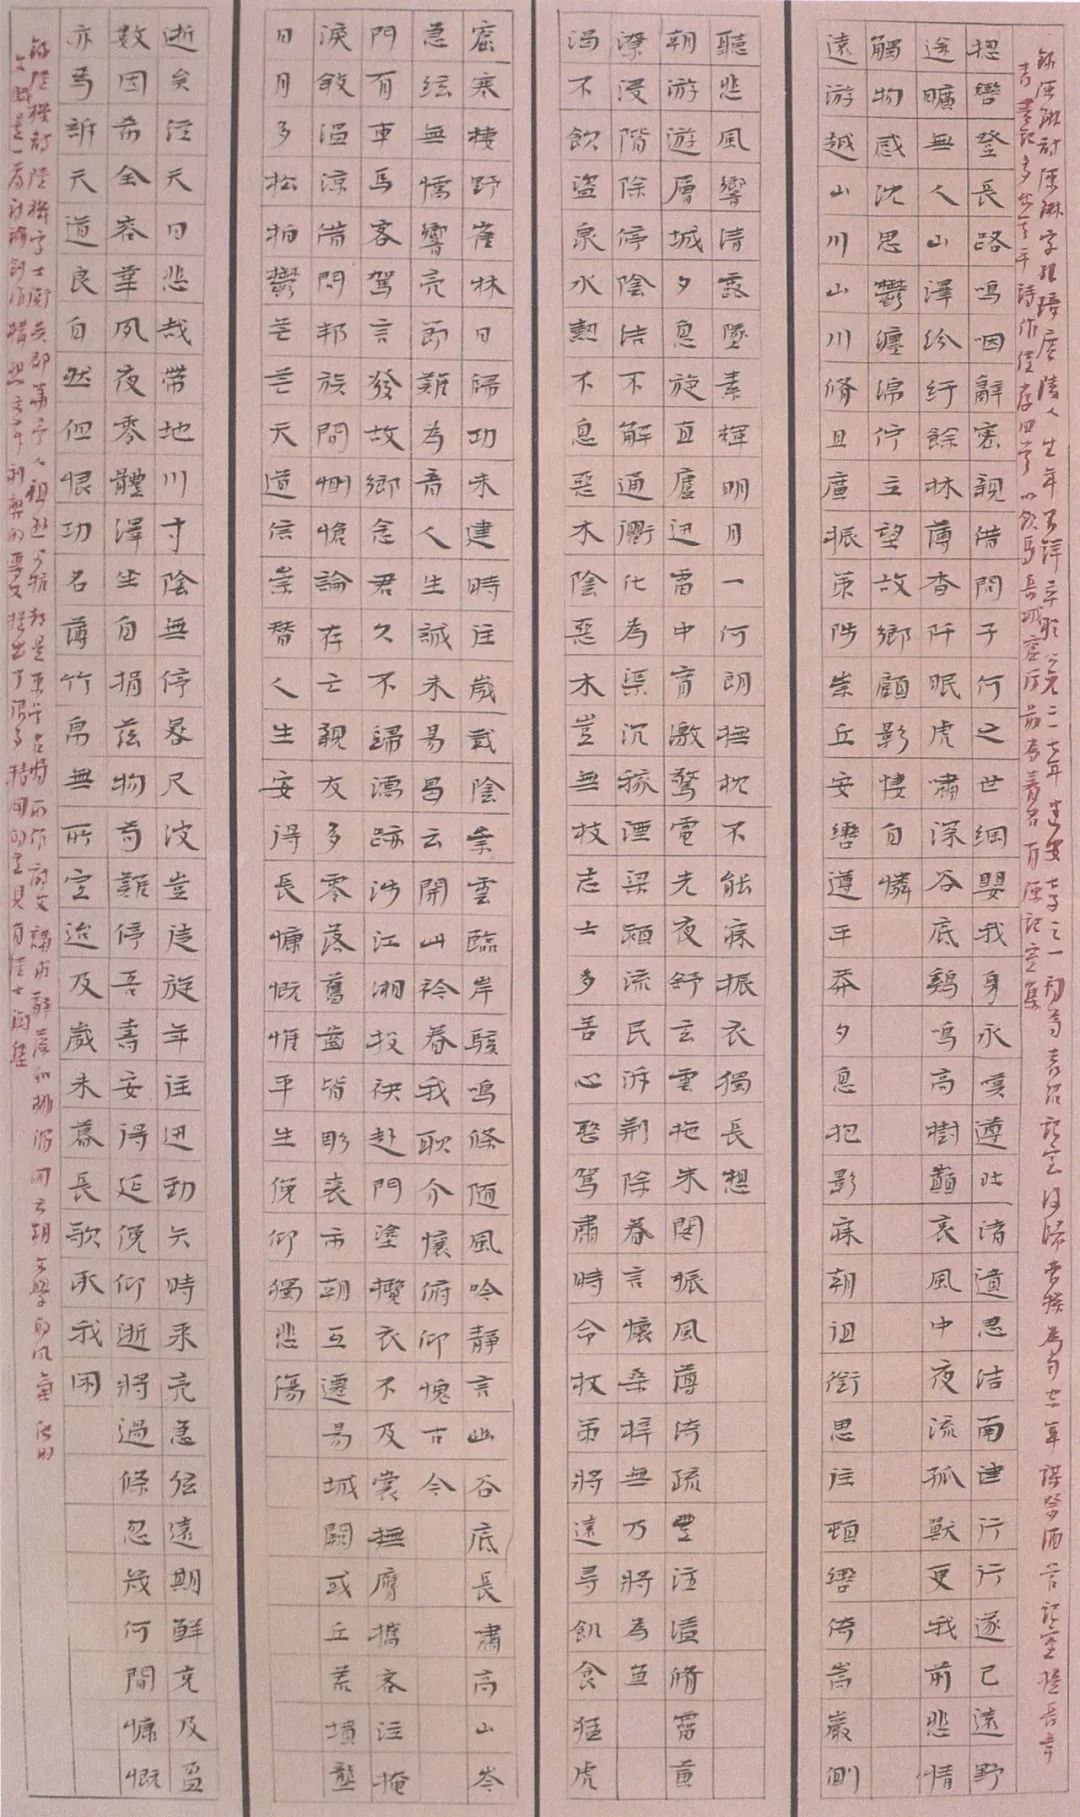 錄陳琳詩陳琳字孔璋廣陵人生年不詳卒於公元二一七年建安七子之一初為袁紹記室後歸曹操為司空軍謀祭酒管記室
揔轡登長路鳴咽辭密親借問子何之世網嬰我身永嘆遵北渚遺思結南津行行遂已遠野
途曠無人山澤紛紆餘林薄杳阡眠虎嘯深谷底鷄鳴高樹巔哀風中夜流孤獸更我前悲情
觸物感沈思鬱纏綿佇立望故鄉顧影悽自憐
遠游越山川山川脩且廣振策陟崇丘安轡遵平莽夕息抱影寐朝徂銜思往頓轡倚嵩巖側
聽悲風響清露墜素輝明月一何朗撫枕不能寐振衣獨長想
朝游遊層城夕息旋直廬迅雷中宵激驚電光夜舒玄雲拖朱閣振風薄綺疏豐注溢脩霤黃
潦浸階除停陰結不解通衢化為渠沉稼湮梁潁流民泝荊除眷言懷桑梓無乃將為魚
渴不飲盜泉水熱不息惡木陰惡木豈無枝志士多苦心整駕肅時令杖策將遠尋飢食猛虎
窟寒棲野雀林日歸功未建時往歲載陰崇雲臨岸駭鳴條隨風吟靜言幽谷底長嘯高山岑
急絃無懦響亮節難為音人生誠未易曷云開此衿眷我耿介懷俯仰愧古今
門有車馬客駕言發故鄉念君久不歸濡跡涉江湘投袂赴門塗攬衣不及裳撫膺攜客泣掩
淚敘溫涼借問邦族間惻愴論存亡親友多零落舊齒皆彫喪市朝互遷易城闕或丘荒墳壟
日月多松柏鬱芒芒天道信崇替人生安得長慷慨惟平生俛仰獨悲傷
逝矣經天日悲哉帶地川寸陰無停晷尺波豈徒旋年往迅勁矢時來亮急弦遠期鮮克及盈
數固希全容華夙夜零體澤坐自捐茲物苟難停吾壽安得延俛仰逝將過倏忽幾何間慷慨
亦焉訴天道良自然但恨功名薄竹帛無所宣迨及歲未暮長歌承我閑
錄陸機詩陸機字士衡吳郡華亭人祖遜父抗都是東吳名將所作詩文講求辭藻和排偶開六朝文學的風氣他的
文賦是一篇討論創作